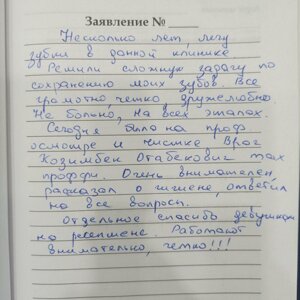 Заявление № ____
Несколько лет, лечу
зубки в данной клинике
Решили сложную задачу по
сохранению моих зубов. Все
грамотно, четко, дружелюбно.
Не больно, на всех этапах.
Сегодня была на проф
осмотре и чистке Врач
Козимбек Отабекович так
профи. Очень внимателен,
рассказал о гигиене, ответил
на все вопросы.
Отдельное спасибо девушкам
на рецепшене. Работают
внимательно, четко!!!